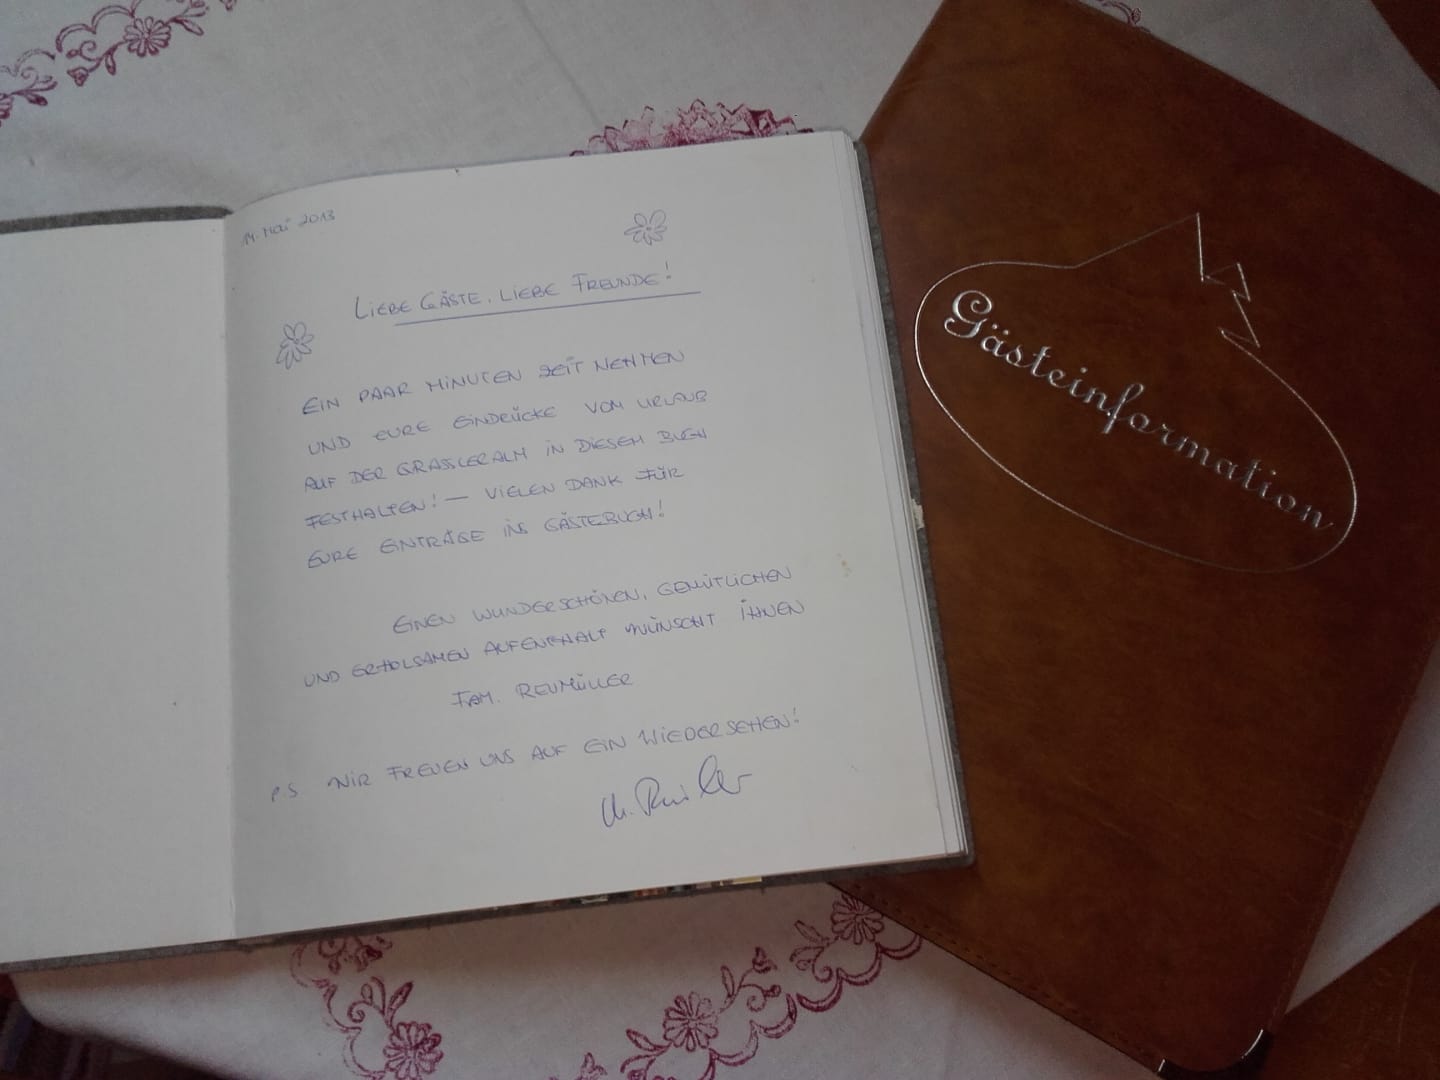 14. Mai 2013
LIEBE GÄSTE, LIEBE FREUNDE!
EIN PAAR MINUTEN ZEIT NEHMEN
UND EURE EINDRÜCKE VOM URLAUB
AUF DER GRASSLERALM IN DIESEM BUCH
FESTHALTEN! — VIELEN DANK FÜR
EURE EINTRÄGE INS GÄSTEBUCH!
EINEN WUNDERSCHÖNEN, GEMÜTLICHEN
UND ERHOLSAMEN AUFENTHALT WÜNSCHT IHNEN
FAM. REUMÜLLER
P.S WIR FREUEN UNS AUF EIN WIEDERSEHEN!
Gästeinformation